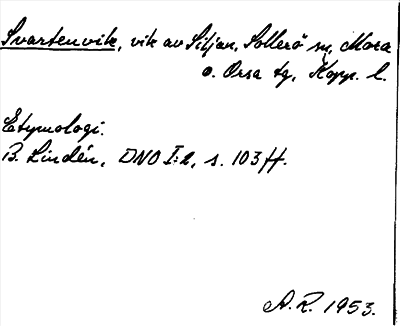 Svartenvik, vik av Siljan, Sollerö sn, Mora
o. Orsa tg, Kopp. l.
Etymologi.
B. Lindén, DNO I:2, s. 103 ff.
A.R. 1953.